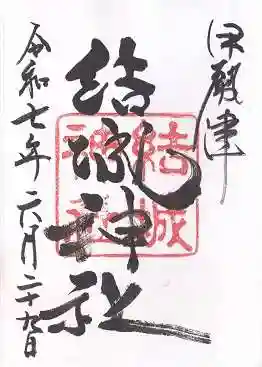 伊勢津
結城神社
結城神社
令和七年六月二十九日